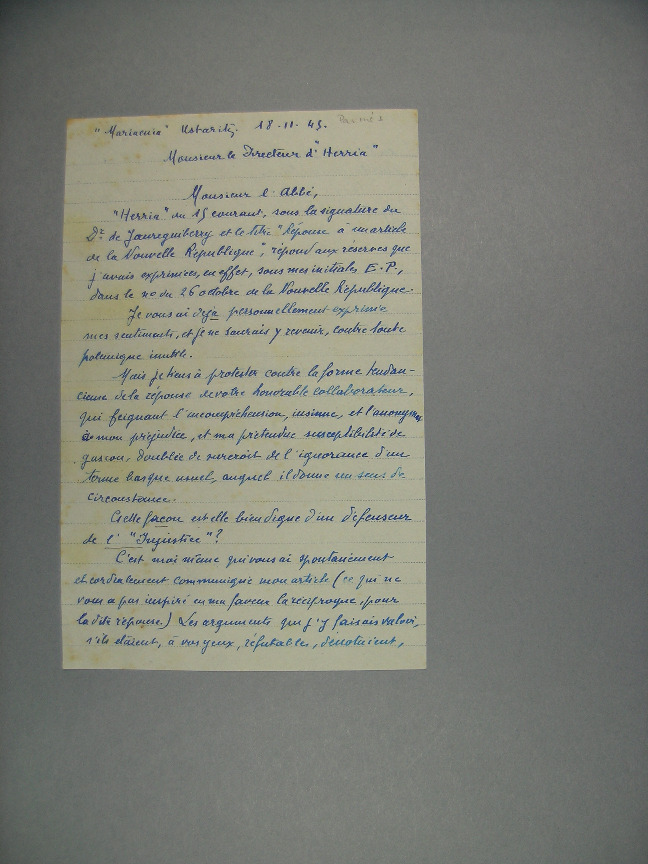 "Mariaenia" Ustaritz. 18-11-45.
Monsieur le Directeur d'"Herria"
Monsieur l'Abbé,
"Herria" du 15 courant, sous la signature du
Dr de Jaureguiberry et le titre "Réponse à un article
de la Nouvelle République", répond aux réserves que
j'avais exprimées, en effet, sous mes initiales E.P.,
dans le no du 26 octobre de la Nouvelle République.
Je vous ai déjà personnellement exprimé
mes sentiments, et je ne saurais y revenir, contre toute
polémique inutile.
Mais je tiens à protester contre la forme tendan-
cieuse de la réponse de votre honorable collaborateur,
qui feignant l'incompréhension, insinue, et l'anonymat
à mon préjudice, et ma prétendue susceptibilité de
gascon, doublée de surcroit de l'ignorance d'un
terme basque usuel, auquel il donne un sens de
circonstance.
Cette façon est elle bien digne d'un défenseur
de l'"Injustice"?
C'est moi même qui vous ai spontanément
et cordialement communiqué mon article (ce qui ne
vous a pas inspiré en ma faveur la réciproque, pour
la dite réponse.) Les arguments que j'y faisais valoir,
s'ils étaient, à vos yeux, réfutable, dénotaient,